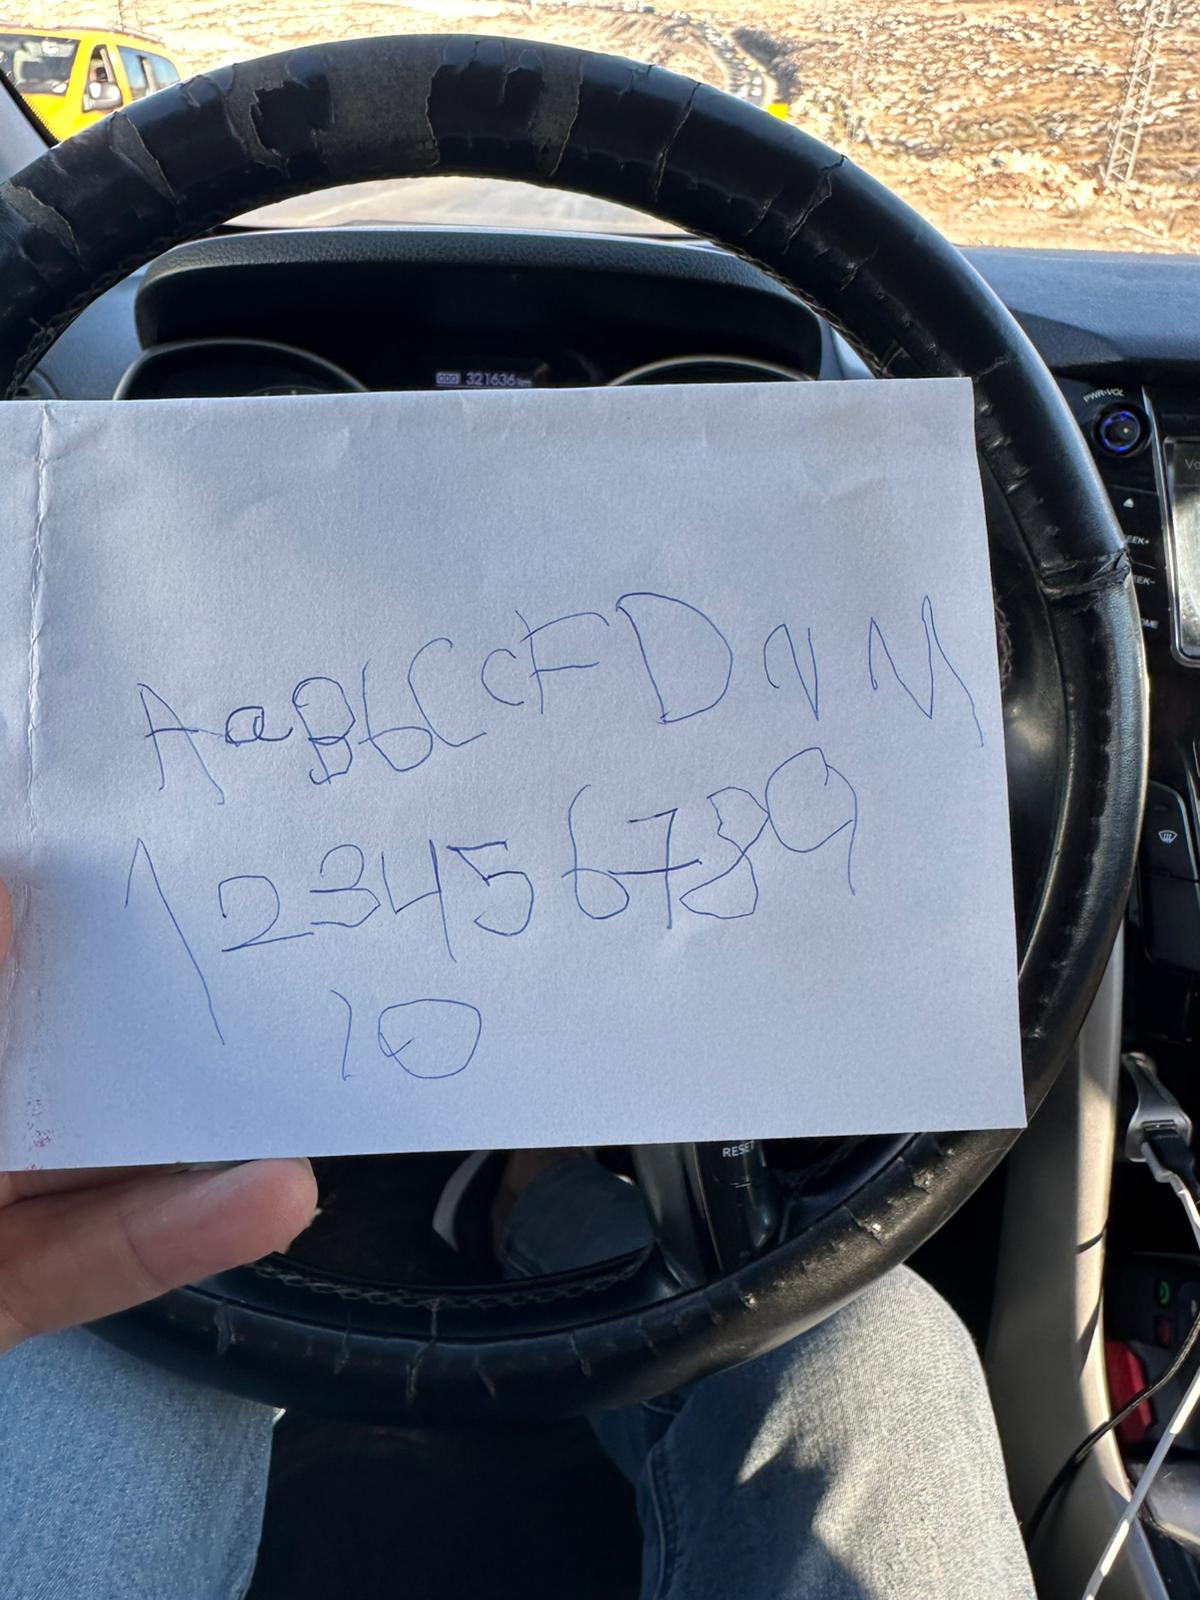 321636
PWR•VOL
A a B b C c F D N M
1 2 3 4 5 6 7 8 9
10
RESET